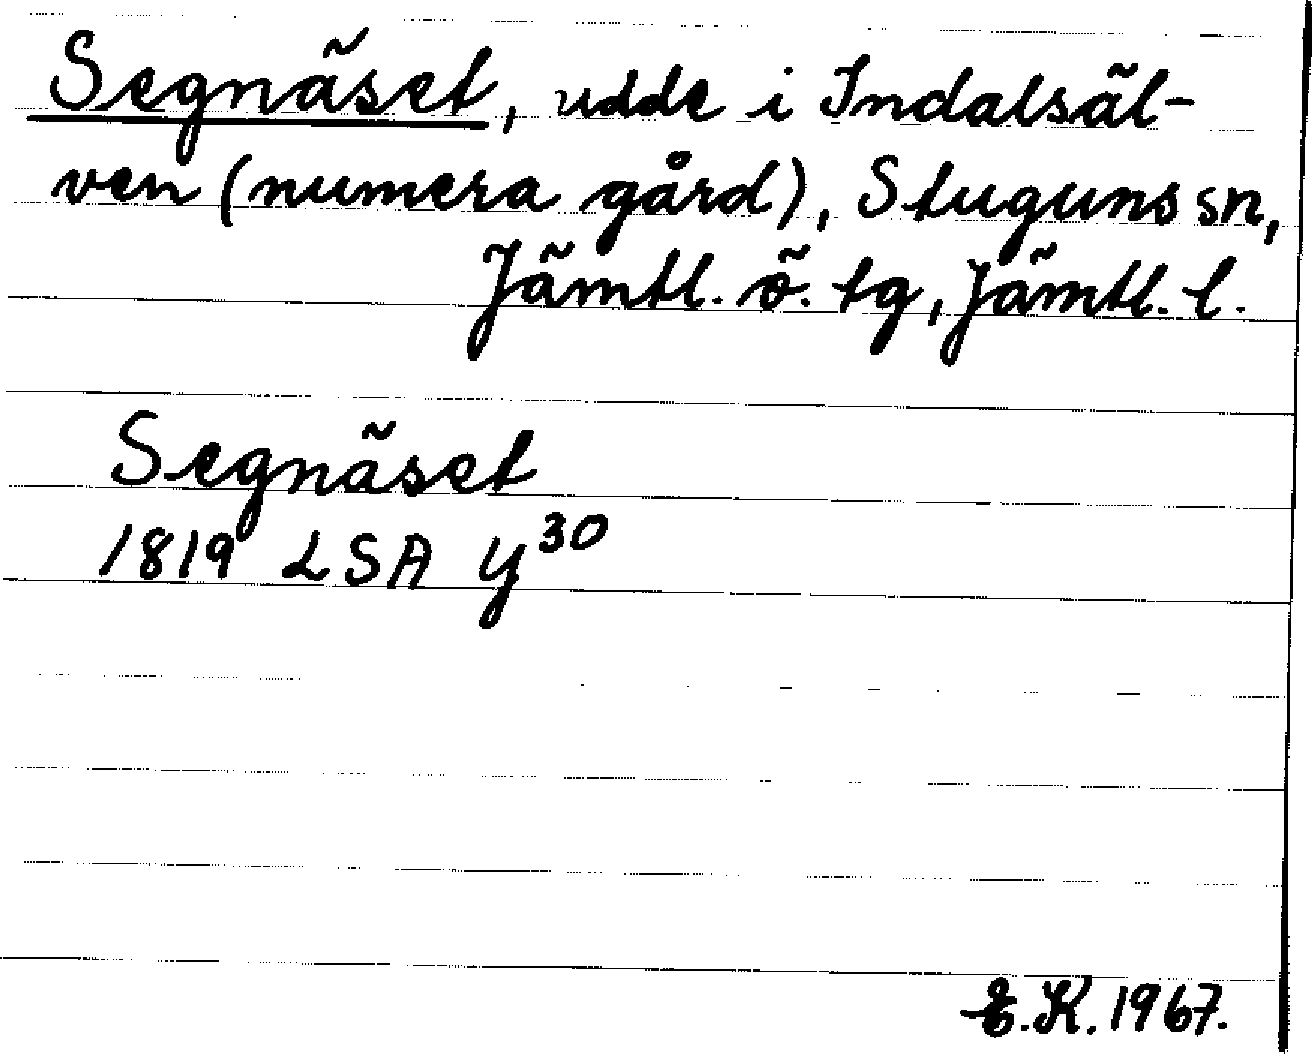 Segnäset, udde i Indalsäl-
ven (numera gård), Stuguns sn,
Jämtl. ö. tg, Jämtl. l.
Segnäset
1819 LSA Y 30
E.K. 1967.